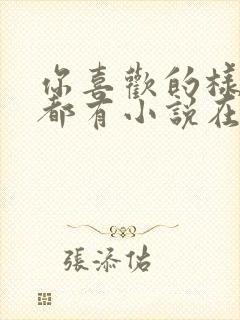 你喜歡的樣
都有小說在
張添佑